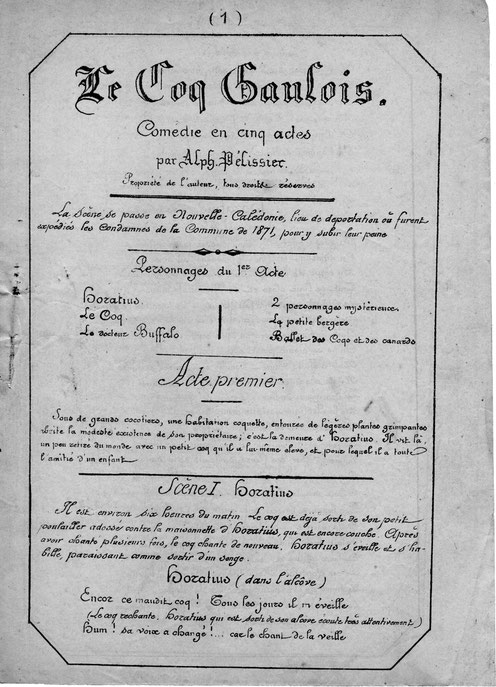 (1)
Le Coq Gaulois.
Comédie en cinq actes
par Alph. Pélissier.
Propriété de l'auteur, tous droits réservés
La Scène se passe en Nouvelle-Calédonie, lieu de deportation où furent
expédiés les Condamnes de la Commune de 1871, pour y subir leur peine
Personnages du 1er Acte
Horatius.
Le Coq.
Le docteur Buffalo
2 personnages mystérieux
La petite bergère
Ballet des Coqs et des canards
Acte premier.
Sous de grands cocotiers, une habitation coquette, entourée de légères plantes grimpantes
abrite la modeste existence de son propriétaire; c'est la demeure d'Horatius. Il vit là
un peu retiré du monde avec un petit coq qu'il a lui même élevé, et pour lequel il a toute
l'amitié d'un enfant
Scène I. Horatius
Il est environ six heures du matin Le coq est déjà sorti de son petit
poulailler adossé contre la maisonnette d'Horatius, qui est encore couché. Après
avoir chanté plusieurs fois, le coq chante de nouveau, Horatius s'éveille et s'ha-
bille, paraissant comme sortir d'un songe.
Horatius (dans l'alcôve)
Encor ce maudit coq! Tous les jours il m'éveille
(Le coq rechante. Horatius qui est sorti de son alcove écoute très attentivement)
Hum! sa voix a changé!... car le chant de la veille